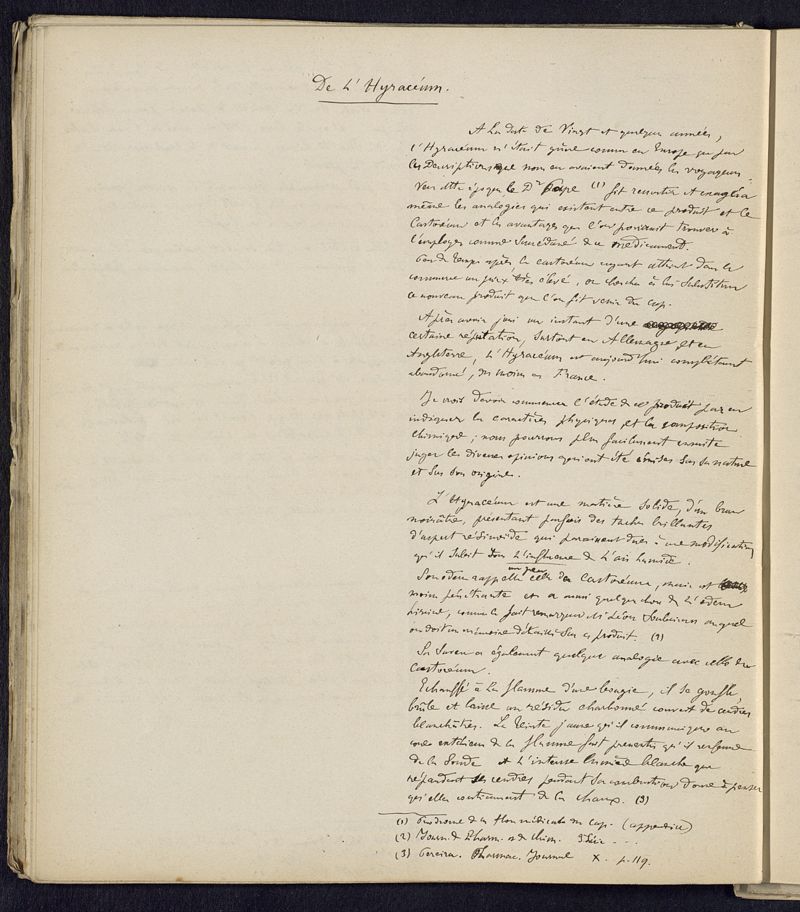 De L'Hyracéum.
A la date de Vingt et quelques années,
l'Hyracéum n'était guère connu en Europe que par
les Descriptions que nous en avaient données les voyageurs.
Vers cette époque le Dr Pape (1) fit ressortir et exagéra
même les analogies qui existent entre ce produit et le
Castoréum et les avantages que l'on pourrait trouver à
l'employer comme Succédané de ce médicament.
Peu de temps après le castoréum ayant atteint dans le
commerce un prix très élevé, on chercha à lui substituer
ce nouveau produit que l'on fit venir du Cap.
Après avoir joui un instant d'une
certaine réputation, surtout en Allemagne et en
Angleterre, L'Hyracéum est aujourd'hui complètement
abandonné, du moins en France.
Je crois devoir commencer l'étude de ce produit par en
indiquer les caractères physiques et la composition
chimique ; nous pourrons plus facilement ensuite
juger les diverses opinions qui ont été émises sur sa nature
et sur son origine.
L'Hyracéum est une matière solide, d'un brun
noirâtre, présentant parfois des taches brillantes
d'aspect résinoïde qui paraissent dues à une modification
qu'il subit sous L'influence de L'air humide.
Son odeur rappelle un peu celle du Castoréum, mais est
moins pénétrante et a aussi quelque chose de L'odeur
urineuse, comme le fait remarquer M. Léon Soubeiran auquel
on doit un mémoire détaillé sur ce produit. (2)
Sa saveur a également quelque analogie avec celle du
Castoréum.
Echauffé à la flamme d'une bougie, il se gonfle,
brûle et laisse un résidu charbonné couvert de cendres
blanchâtres. La teinte jaune qu'il communique au
cône extérieur de la flamme fait présenter qu'il renferme
de la Soude et L'intense lumière blanche que
répandent ses cendres pendant sa combustion donne à penser
qu'elles contiennent de la chaux. (3)
(1) Prodrome de la flore médicale du Cap. (appendice)
(2) Journ. de Pharm. et de Chim. 3e Série ...
(3) Pereira. Pharmac. Journal X. p. 119.